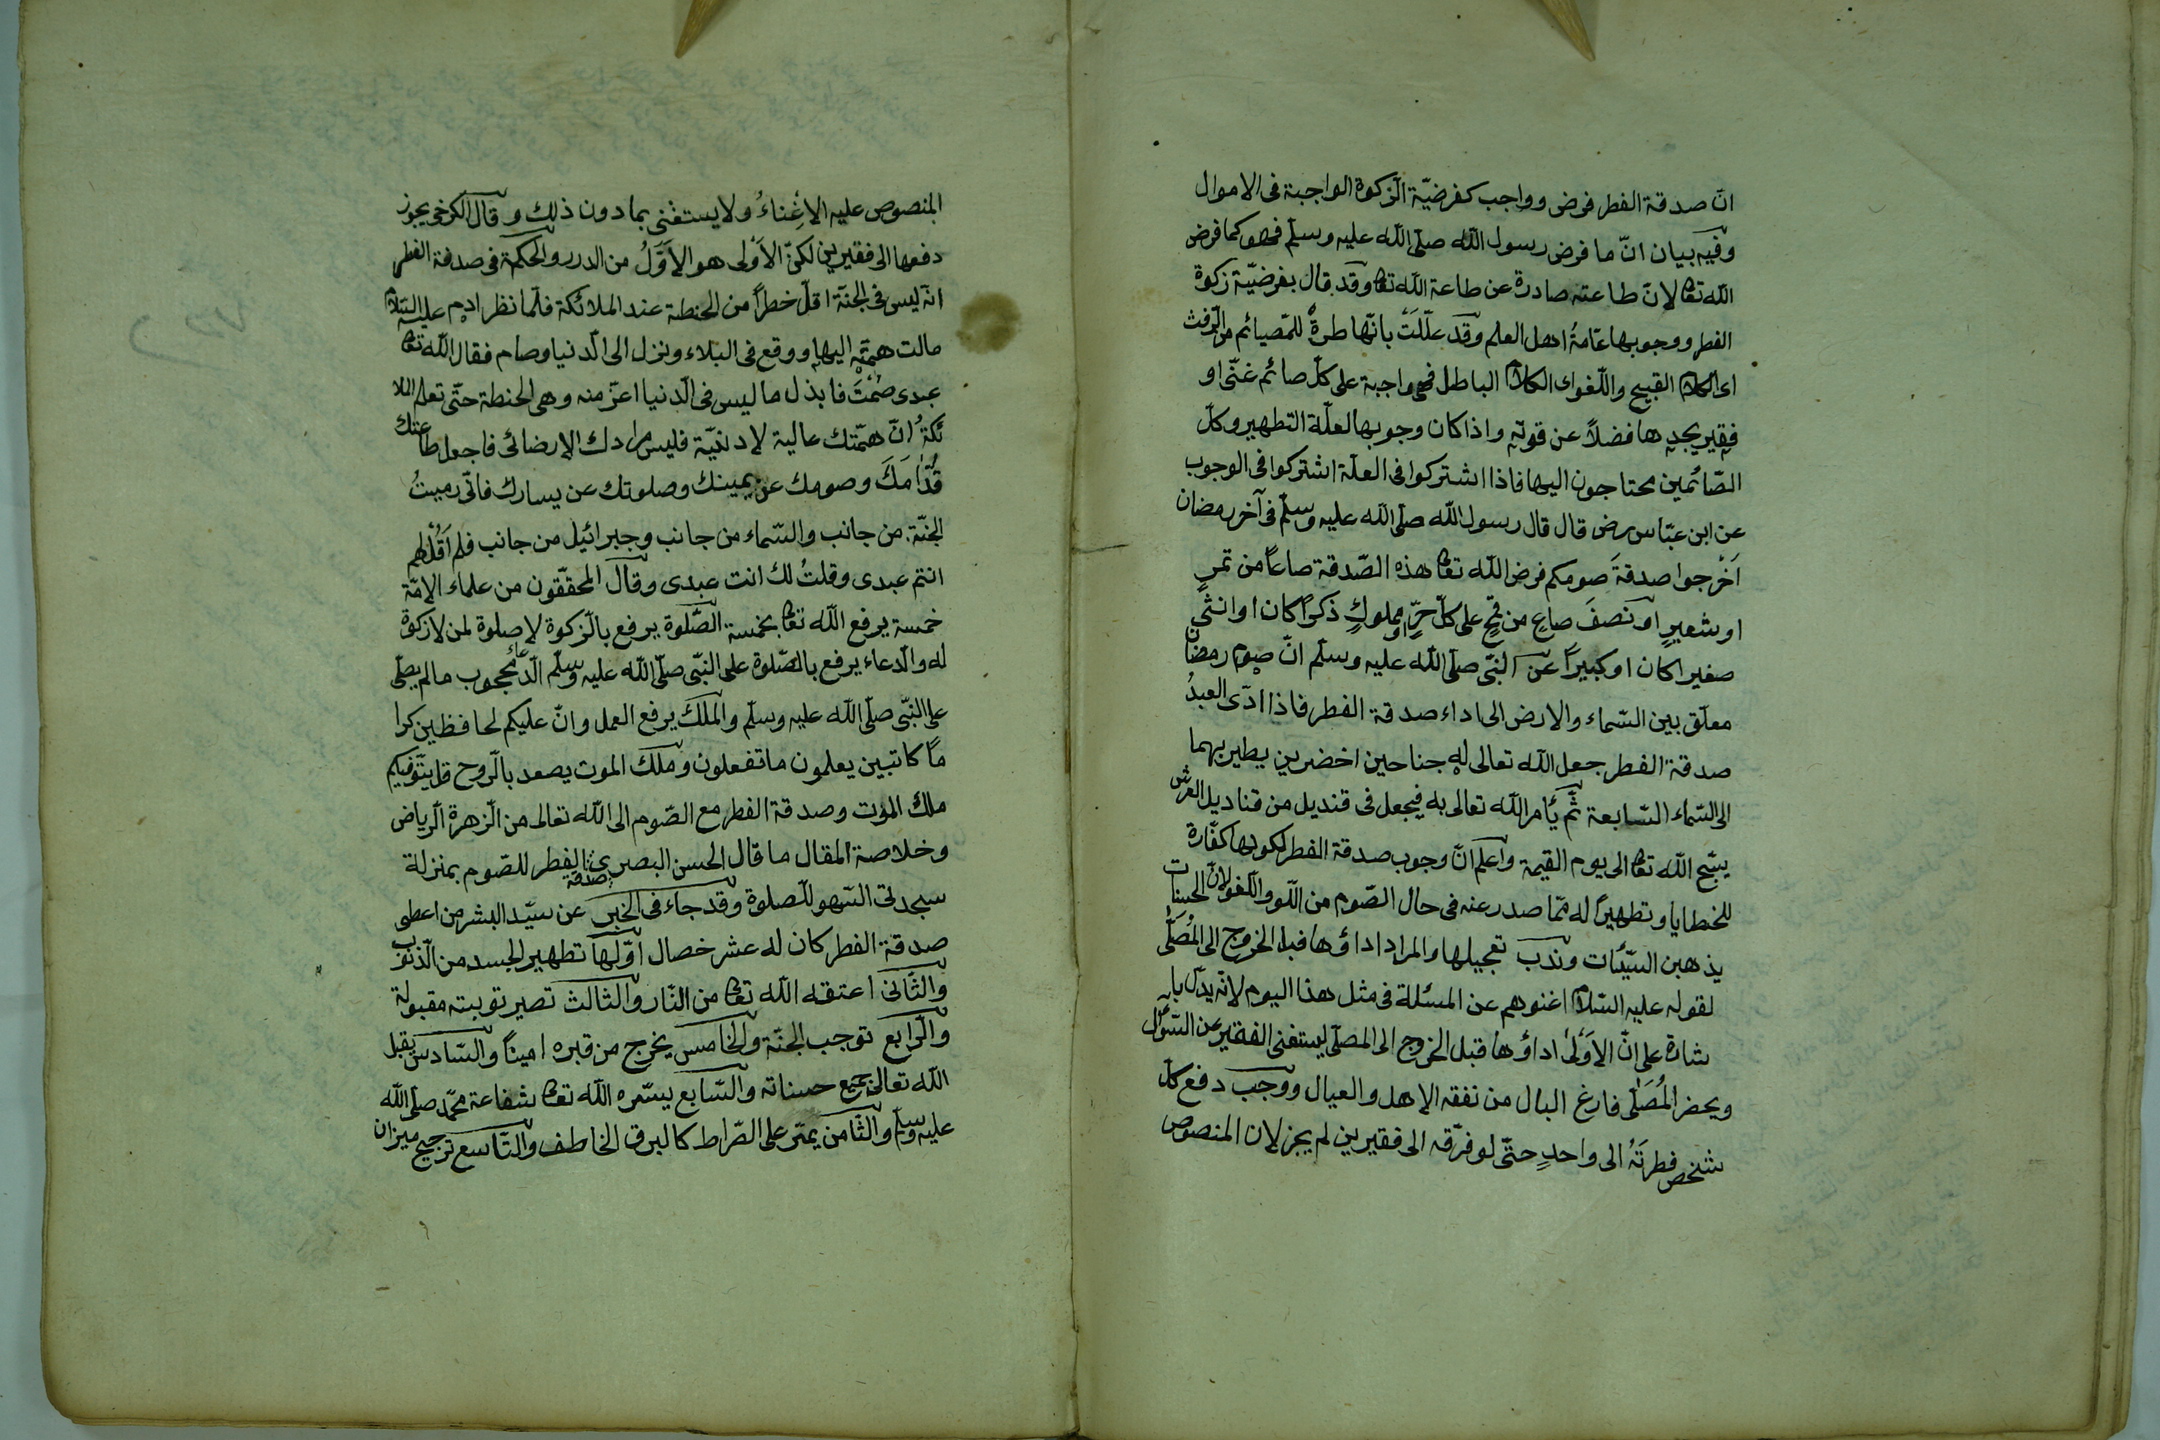 انّ صدقة الفطر فرض وواجب كفرضيّة الزّكوة الواجبة فى الاموال
وفيه بيان انّ ما فرض رسول الله صلّى الله عليه وسلّم فهو كما فرض
الله تعا لانّ طاعته صادرة عن طاعة الله تعا وقد قال بفرضيّة زكوة
الفطر ووجوبها عامّةُ اهل العلم وقد علّلت بانّها طهرةٌ للصّيائم من الرّفث
اى الكلام القبيح واللّغو اى الكلام الباطل فهى واجبة على كلّ صائم غنّى او
فقير يجدها فضلاً عن قوته واذا كان وجوبها لعلّة التطهير وكلّ
الصّائمين محتاجون اليها فاذا اشتركوا فى العلّة اشتركوا فى الوجوب
عن ابن عبّاس رض قال قال رسول الله صلّى الله عليه وسلّم فى آخر رمضان
اَخْرجوا صدقةَ صومكم فرض الله تعا هذه الصّدقة صاعاً من تمرٍ
او شعيرٍ او نصفَ صاعٍ من قمحٍ على كلّ حرٍّ او مملوكٍ ذكراً كان او انثى
صغيرا كان او كبيراً عن النبّى صلّى الله عليه وسلّم انّ صوم رمضان
معلّق بين السّماء والارض الى اداء صدقة الفطر فاذا ادّى العبدُ
صدقة الفطر جعل الله تعالى له جناحين اخضرين يطير بهما
الى السّماء السّابعة ثمّ يأمر الله تعالى به فيجعل فى قنديل من قناديل العرش
يسّبح الله تعا الى يوم القيمة واعلم انّ وجوب صدقة الفطر لكونها كفّارة
للخطايا وتطهيراً له ممّا صدر عنه فى حال الصّوم من اللّهو واللّغو لانّ الحسنات
يذهبن السّيّئات وندب تعجيلها والمراد اداؤها قبل الخروج الى المُصَلّى
لقوله عليه السّلام اغنوهم عن المسئلة فى مثل هذا اليوم لانّه يدّل با
شارة على انّ الاَوْلىٰ اداؤها قبل الخروج الى المصلّى ليستغنى الفقير عن السّؤال
ويحضر المُصَلّى فارغ البال من نفقة الاهل والعيال ووجب دفع كلّ
شخص فطرتَهُ الى واحدٍ حتّى لو فرّقه الى فقيرين لم يجز لان المنصوص
المنصوص عليه الاِغْناءُ ولا يستغنى بما دون ذلك وقال الكرخى يجوز
دفعها الى فقيرين لكنّ الاَوْلى هو الاَوّلُ من الدرر والحكمة فى صدقة الفطر
انّه ليس فى الجنّة اقلّ خطراً من الحنطة عند الملائكة فلمّا نظر ادم عليه السّلام
مالت همّته اليها ووقع فى البلاء ونزل الى الدّنيا وصام فقال الله تعا
عبدى صُمْتَ فابذل ما ليس فى الدّنيا اعزّ منه وهى الحنطة حتّى تعلم الملا
ئكةُ انّ همّتك عالية لا دنيّة فليس مرادك الا رضائى فاجعل طاعتك
قُدّامَكَ وصومك عن يمينك وصلوتك عن يسارك فانّى رميتُ
الجنّة من جانب والسّماء من جانب وجبرائيل من جانب فلم اَقُلْ لهم
انتم عبدى وقلتُ لك انت عبدى وقال المحقّقون من علماء الامّة
خمسة يرفع الله تعا بخمسة الصّلوة يرفع بالزّكوة لا صلوة لمن لا زكوة
له والدّعاء يرفع بالصّلوة على النبّى صلّى الله عليه وسلّم الدّعاء محجوب ما لم يصلّى
على النبّى صلّى الله عليه وسلّم والملك يرفع العمل وانّ عليكم لحافظين كرا
ماً كاتبين يعلمون ما تفعلون وملك الموت يصعد بالرّوح قل يتوّفيكم
ملك الموت وصدقة الفطر مع الصّوم الى الله تعالى من الزّهرة الرّياض
وخلاصة المقال ما قال الحسن البصرى صدقة الفطر للصّوم بمنزلة
سجدتى السّهو للصّلوة وقد جاء فى الخبر عن سيّد البشر من اعطى
صدقة الفطر كان له عشر خصال اوّلها تطهير الجسد من الذّنوب
والثّانى اعتقه الله تعا من النّار والثالث تصير توبته مقبولة
والرّابع توجب الجنّة والخامس يخرج من قبره اميناً والسّادس يقبل
الله تعالى جميع حسناته والسّابع يسّره الله تعا شفاعة محمّد صلّى الله
عليه وسلم والثّامن يمرّ على الصّراط كالبرق الخاطف والتّاسع ترجيح ميزان